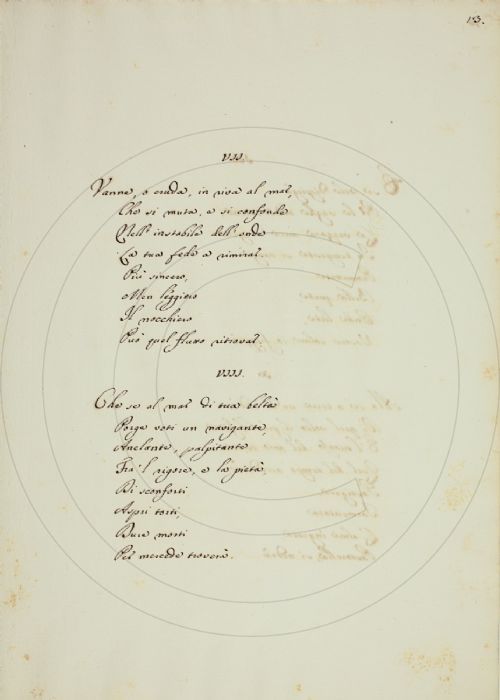 173.
VII
Vanne, o cruda, in riva al mar,
Che si muta, e si confonde
Nell' instabile dell' onde
La tua fede a rimirar.
Più sincero,
Men leggiero
Il nocchiero
Può quel flusso ritrovar.
VIII.
Che se al mar di tua beltà
Porge voti un navigante,
Anelante, palpitante
Fra'l rigore, e la pietà
Di sconforti
Aspri torti,
Dure morti
Per mercede troverà.